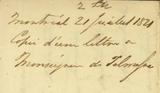 Montréal 21 juillet 1821
Copie d'une lettre a
Monseigneur de Telmesse